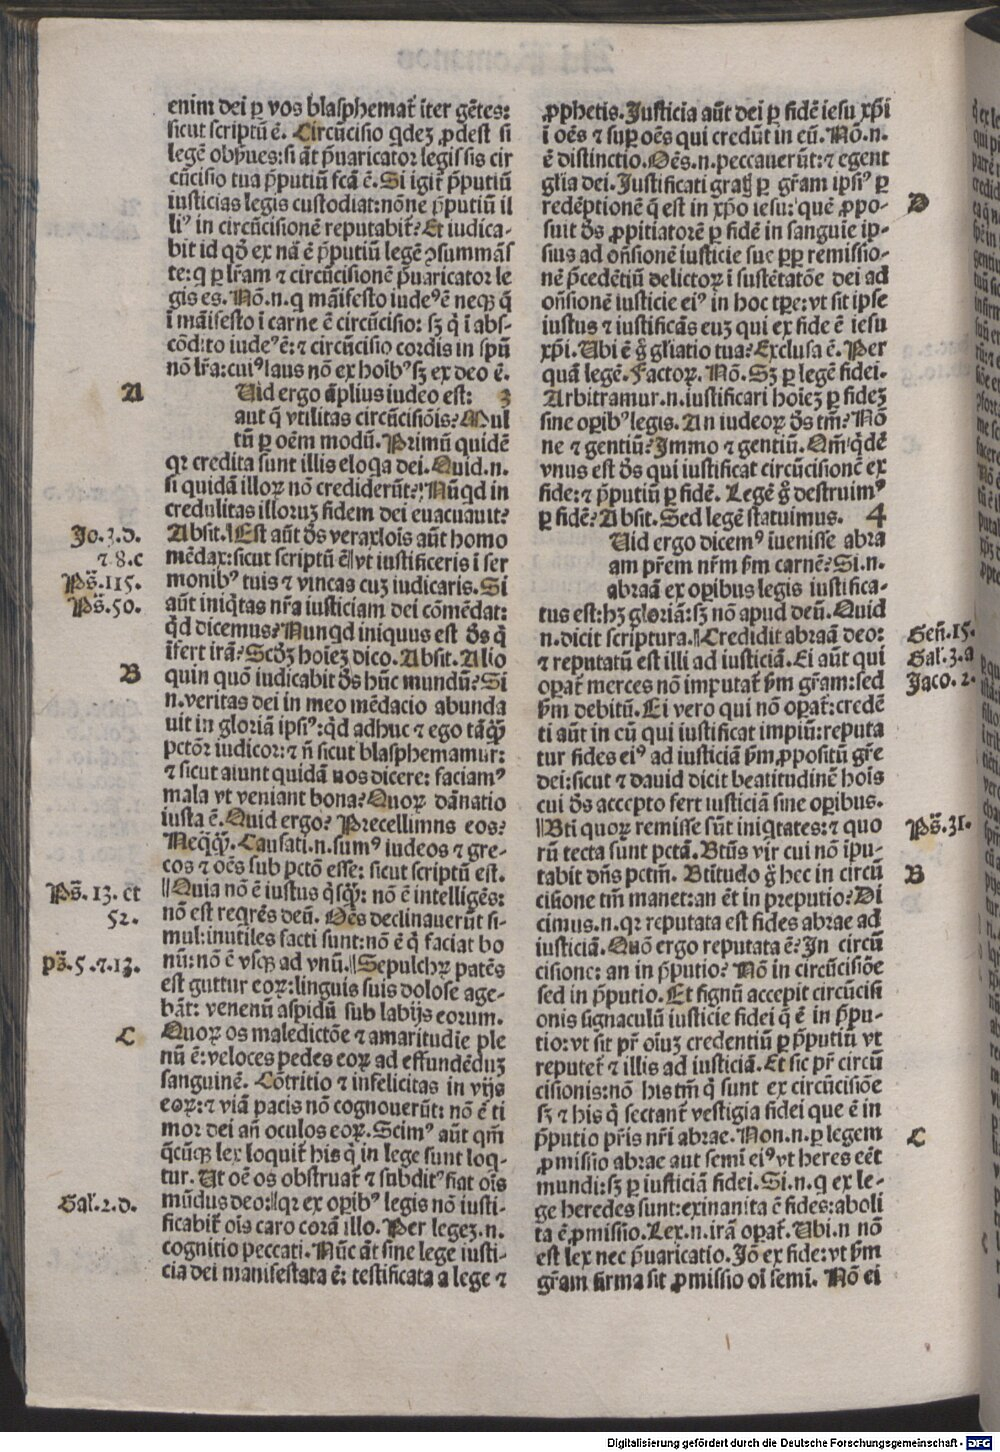 enim dei ꝑ vos blasphemat᷑ īter gētes:
sicut scriptū ē. Circūcisio qdeꝫ ꝓdest si
legē obẜues: si āt p̄uaricator legis sis cir
cūcisio tua p̄putiū fcā ē. Si igit᷑ p̄putiū
iusticias legis custodiat: nōne p̄putiū il
liꝰ in circūcisionē reputabit᷑? Et iudica-
bit id qḋ ex nā ē p̄putiū legē ꝯsummās
te: q ꝑ lr̄am ⁊ circūcisionē p̄uaricator le
gis es. Nō .n. q māifesto iudeꝰ ē neqꝫ q̄
ī māifesto ī carne ē circūcisio: sꝫ q̇ ī abs-
cōdito iudeꝰ ē: ⁊ circūcisio cordis in spū
nō lr̄a: cuiꝰ laus nō ex hoībꝰ sꝫ ex deo ē.
A
Uid ergo āplius iudeo est: 3
aut q̄ vtilitas circūcisiōis? Mul
tū ꝑ oēm modū. Primū quidē
qꝛ credita sunt illis eloqa dei. Quid .n.
si quidā illoꝝ nō crediderūt? Nūqd in
credulitas illoruꝫ fidem dei euacuauit?
Jo. 3. d.
Absit. Est aūt d̄s verax: oīs aūt homo
⁊ 8. c
mēdax: sicut scriptū ē vt iustificeris ī ser
Ps̄. 115.
monibꝰ tuis ⁊ vincas cuꝫ iudicaris. Si
Ps̄. 50.
aūt iniqtas nr̄a iusticiam dei cōmēdat:
q̇d dicemus? Nunqd iniquus est d̄s q̇
īfert irā? Scd̄ꝫ hoīeꝫ dico. Absit. Alio
B
quin quō iudicabit d̄s hūc mundū? Si
.n. veritas dei in meo mēdacio abunda
uit in gloriā ipsiꝰ: qd adhuc ⁊ ego tāq̄ꝫ
pctōr iudicor: ⁊ n̄ sicut blasphemamur:
⁊ sicut aiunt quidā nos dicere: faciamꝰ
mala vt veniant bona? Quoꝝ dānatio
iusta ē. Quid ergo? Precellimns eos?
Neq̄q̄ꝫ. Causati .n. sumꝰ iudeos ⁊ gre-
cos ⁊ oēs sub pctō esse: sicut scriptū est.
Ps̄. 13. et
Quia nō ē iustus q̇sq̄ꝫ: nō ē intelligēs:
52.
nō est reqrēs deū. Oēs declinauerūt si-
mul: inutiles facti sunt: nō ē q̇ faciat bo
ps̄. 5. ⁊. 13.
nū: nō ē vsqꝫ ad vnū. Sepulchꝝ patēs
est guttur eoꝝ: linguis suis dolose age-
bāt: venenū aspidū sub labijs eorum.
C
Quoꝝ os maledictōe ⁊ amaritudie ple
nū ē: veloces pedes eoꝝ ad effundēduꝫ
sanguinē. Cōtritio ⁊ infelicitas in vijs
eoꝝ: ⁊ viā pacis nō cognouerūt: nō ē ti
mor dei an̄ oculos eoꝝ. Scimꝰ aūt qm̄
q̄cūqꝫ lex loquit᷑ his q̇ in lege sunt loq-
tur. Ut oē os obstruat᷑ ⁊ subditꝰ fiat oīs
Gal᷑. 2. d.
mūdus deo: qꝛ ex oꝑibꝰ legis nō iusti-
ficabit᷑ oīs caro corā illo. Per legeꝫ .n.
cognitio peccati. Nūc āt sine lege iusti-
cia dei manifestata ē: testificata a lege ⁊
ꝓphetis. Justicia aūt dei ꝑ fidē iesu xp̄i
ī oēs ⁊ suꝑ oēs qui credūt in eū. Nō .n.
ē distinctio. Oēs .n. peccauerūt: ⁊ egent
gl̄ia dei. Justificati gratꝭ ꝑ gr̄am ipsiꝰ ꝑ
D
redēptionē q̄ est in xp̄o iesu: quē ꝓpo-
suit d̄s ꝓpitiatorē ꝑ fidē in sanguīe ip-
sius ad on̄sionē iusticie sue ꝓpꝑ remissio-
nē p̄cedētiū delictoꝝ ī sustētatōe dei ad
on̄sionē iusticie eiꝰ in hoc tꝑe: vt sit ipse
iustus ⁊ iustificās euꝫ qui ex fide ē iesu
xp̄i. Ubi ē g̊ gl̄iatio tua? Exclusa ē. Per
quā legē. Factoꝝ. Nō. Sꝫ ꝑ legē fidei.
Arbitramur .n. iustificari hoīeꝫ ꝑ fideꝫ
sine oꝑibꝰ legis. An iudeoꝝ d̄s tm̄? Nō
ne ⁊ gentiū? Immo ⁊ gentiū. Qm̄ q̇dē
vnus est d̄s qui iustificat circūcisionē ex
fide: ⁊ p̄putiū ꝑ fidē. Legē g̊ destruimꝰ
ꝑ fidē? Absit. Sed legē statuimus. 4
Uid ergo dicemꝰ īuenisse abra
am pr̄em nr̄m ẜm carnē? Si .n.
abraā ex oꝑibus legis iustifica-
tus est: hꝫ gloriā: sꝫ nō apud deū. Quid
Gen̄. 15.
.n. dicit scriptura. Credidit abraā deo:
Gal᷑. 3. a
⁊ reputatū est illi ad iusticiā. Ei aūt qui
Jaco. 2.
oꝑat᷑ merces nō imputat᷑ ẜm gr̄am: sed
ẜm debitū. Ei vero qui nō oꝑat᷑: credē
ti aūt in eū qui iustificat impiū: reputa
tur fides eiꝰ ad iusticiā ẜm ꝓpositū gr̄e
dei: sicut ⁊ dauid dicit beatitudinē hoīs
cui d̄s accepto fert iusticiā sine oꝑibus.
Ps̄. 31.
Bti quoꝝ remisse sūt iniqtates: ⁊ quo
rū tecta sunt pctā. Bt̄us vir cui nō īpu-
B
tabit dn̄s pctm̄. Bt̄itudo g̊ hec in circū
cisione tm̄ manet: an ēt in preputio? Di
cimus .n. qꝛ reputata est fides abrae ad
iusticiā. Quō ergo reputata ē? In circū
cisione: an in p̄putio? Nō in circūcisiōe
sed in p̄putio. Et signū accepit circūcisi
onis signaculū iusticie fidei q̄ ē in p̄pu-
tio: vt sit pr̄ oīuꝫ credentiū ꝑ p̄putiū vt
reputet᷑ ⁊ illis ad iusticiā. Et sic pr̄ circū
cisionis: nō his tm̄ q̇ sunt ex circūcisiōe
sꝫ ⁊ his q̇ sectant᷑ vestigia fidei que ē in
C
p̄putio pr̄is nr̄i abrae. Non .n. ꝑ legem
ꝓmissio abrae aut semī eiꝰ vt heres eēt
mundi: sꝫ ꝑ iusticiā fidei. Si .n. q ex le-
ge heredes sunt: exinanita ē fides: aboli
ta ē ꝓmissio. Lex .n. irā oꝑat᷑. Ubi .n nō
est lex nec p̄uaricatio. Jō ex fide: vt ẜm
gr̄am firma sit ꝓmissio oī semī. Nō ei
Digitalisierung gefördert durch die Deutsche Forschungsgemeinschaft - DFG